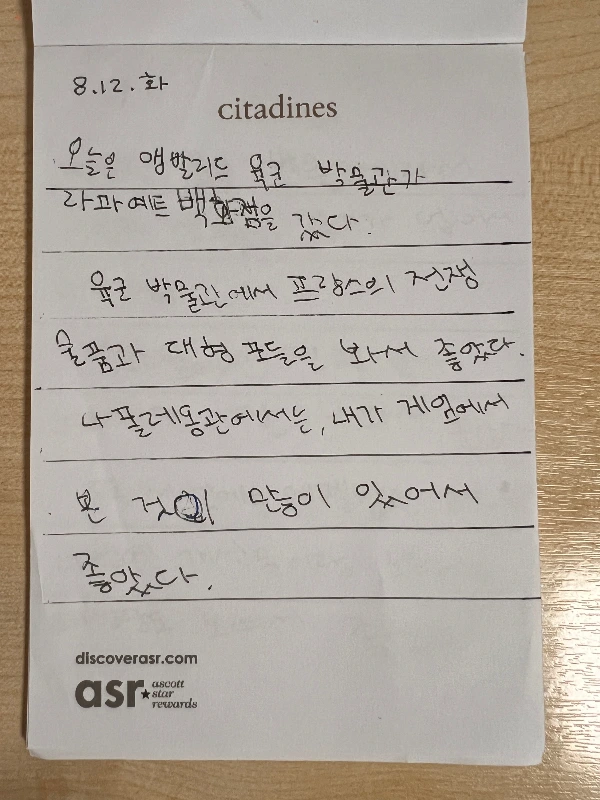 8.12.화
citadines
오늘은 앵발리드 육군 박물관가
라파예트 백화점을 갔다.
육군 박물관에서 프랑스의 전쟁
물품과 대형 포들을 봐서 좋았다.
나폴레옹관에서는, 내가 게임에서
본 것이 많이 있어서
좋았다.
discoverasr.com
asr ascott
star
rewards